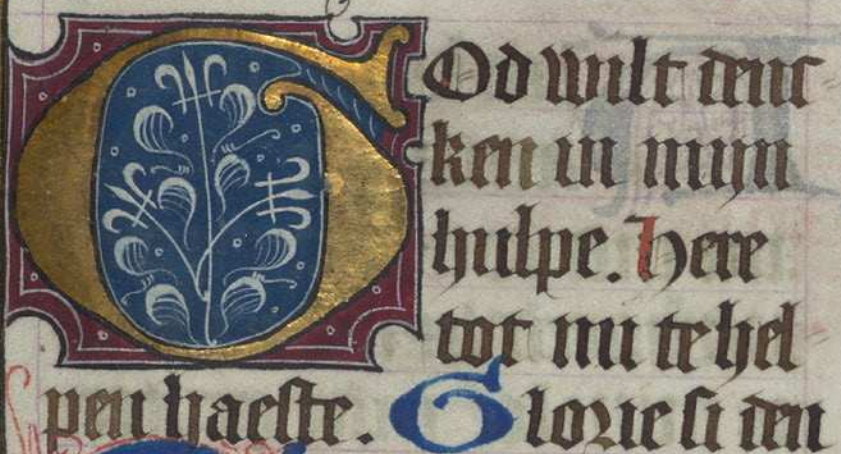 God wilt denc
ken in mijn
hulpe. here
tot mi te hel
pen haeste. Glorie si den